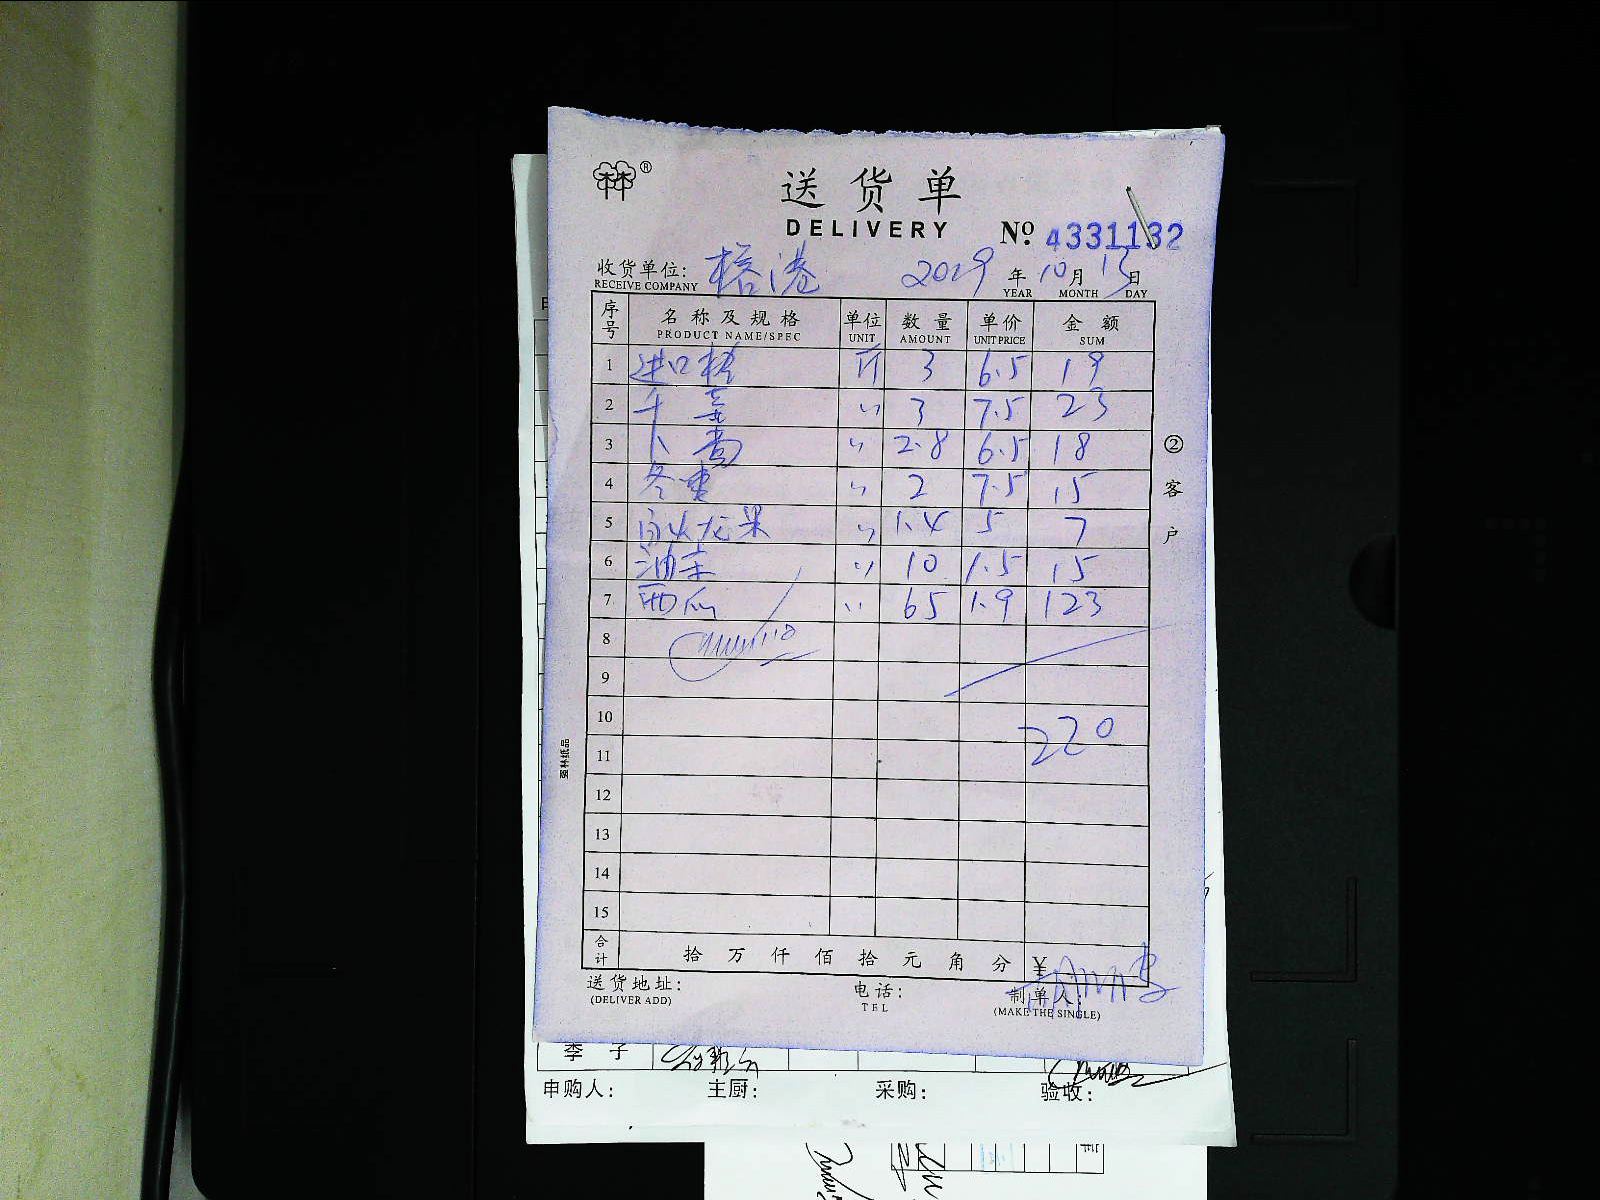 林®
送货单
DELIVERY
№ 4331132
收货单位: 榕港 2019 年 10 月 15 日
RECEIVE COMPANY YEAR MONTH DAY
序号 名称及规格 单位 数量 单价 金额
PRODUCT NAME/SPEC UNIT AMOUNT UNIT PRICE SUM
1 进口橙 斤 3 6.5 19
2 千喜 〃 3 7.5 23
3 〃 2.8 6.5 18
4 冬枣 〃 2 7.5 15
5 白火龙果 〃 1.4 5 7
6 油 〃 10 1.5 15
7 西瓜 〃 65 1.9 123
8
9
10 220
11
12
13
14
15
合计 拾 万 仟 佰 拾 元 角 分 ¥
送货地址: 电话: 制单人:
(DELIVER ADD) TEL (MAKE THE SINGLE)
②客户
强林纸品
李子
申购人: 主厨: 采购: 验收: